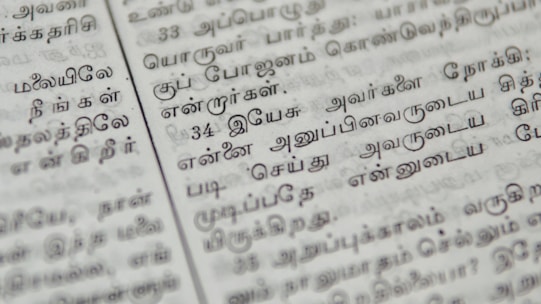 அவனை
ர்க்கதரிசி
மலையிலே
நீங்கள்
ஸ்தலத்திலே
என்கிறீர்
நான்
இந்த மலை
உண்டு
33 அப்பொழுது
யொருவர் பார்த்து: யாரா
குப் போஜனம் கொண்டுவந்திருப்பா
என்றார்கள்.
34 இயேசு அவர்களை நோக்கி:
என்னை அனுப்பினவருடைய சித்த
படி செய்து அவருடைய கிரி
முடிப்பதே என்னுடைய போ
யிருக்கிறது.
35 அறுப்புக்காலம் வருகிற
னும் நாலுமாதம் செல்லும் எ